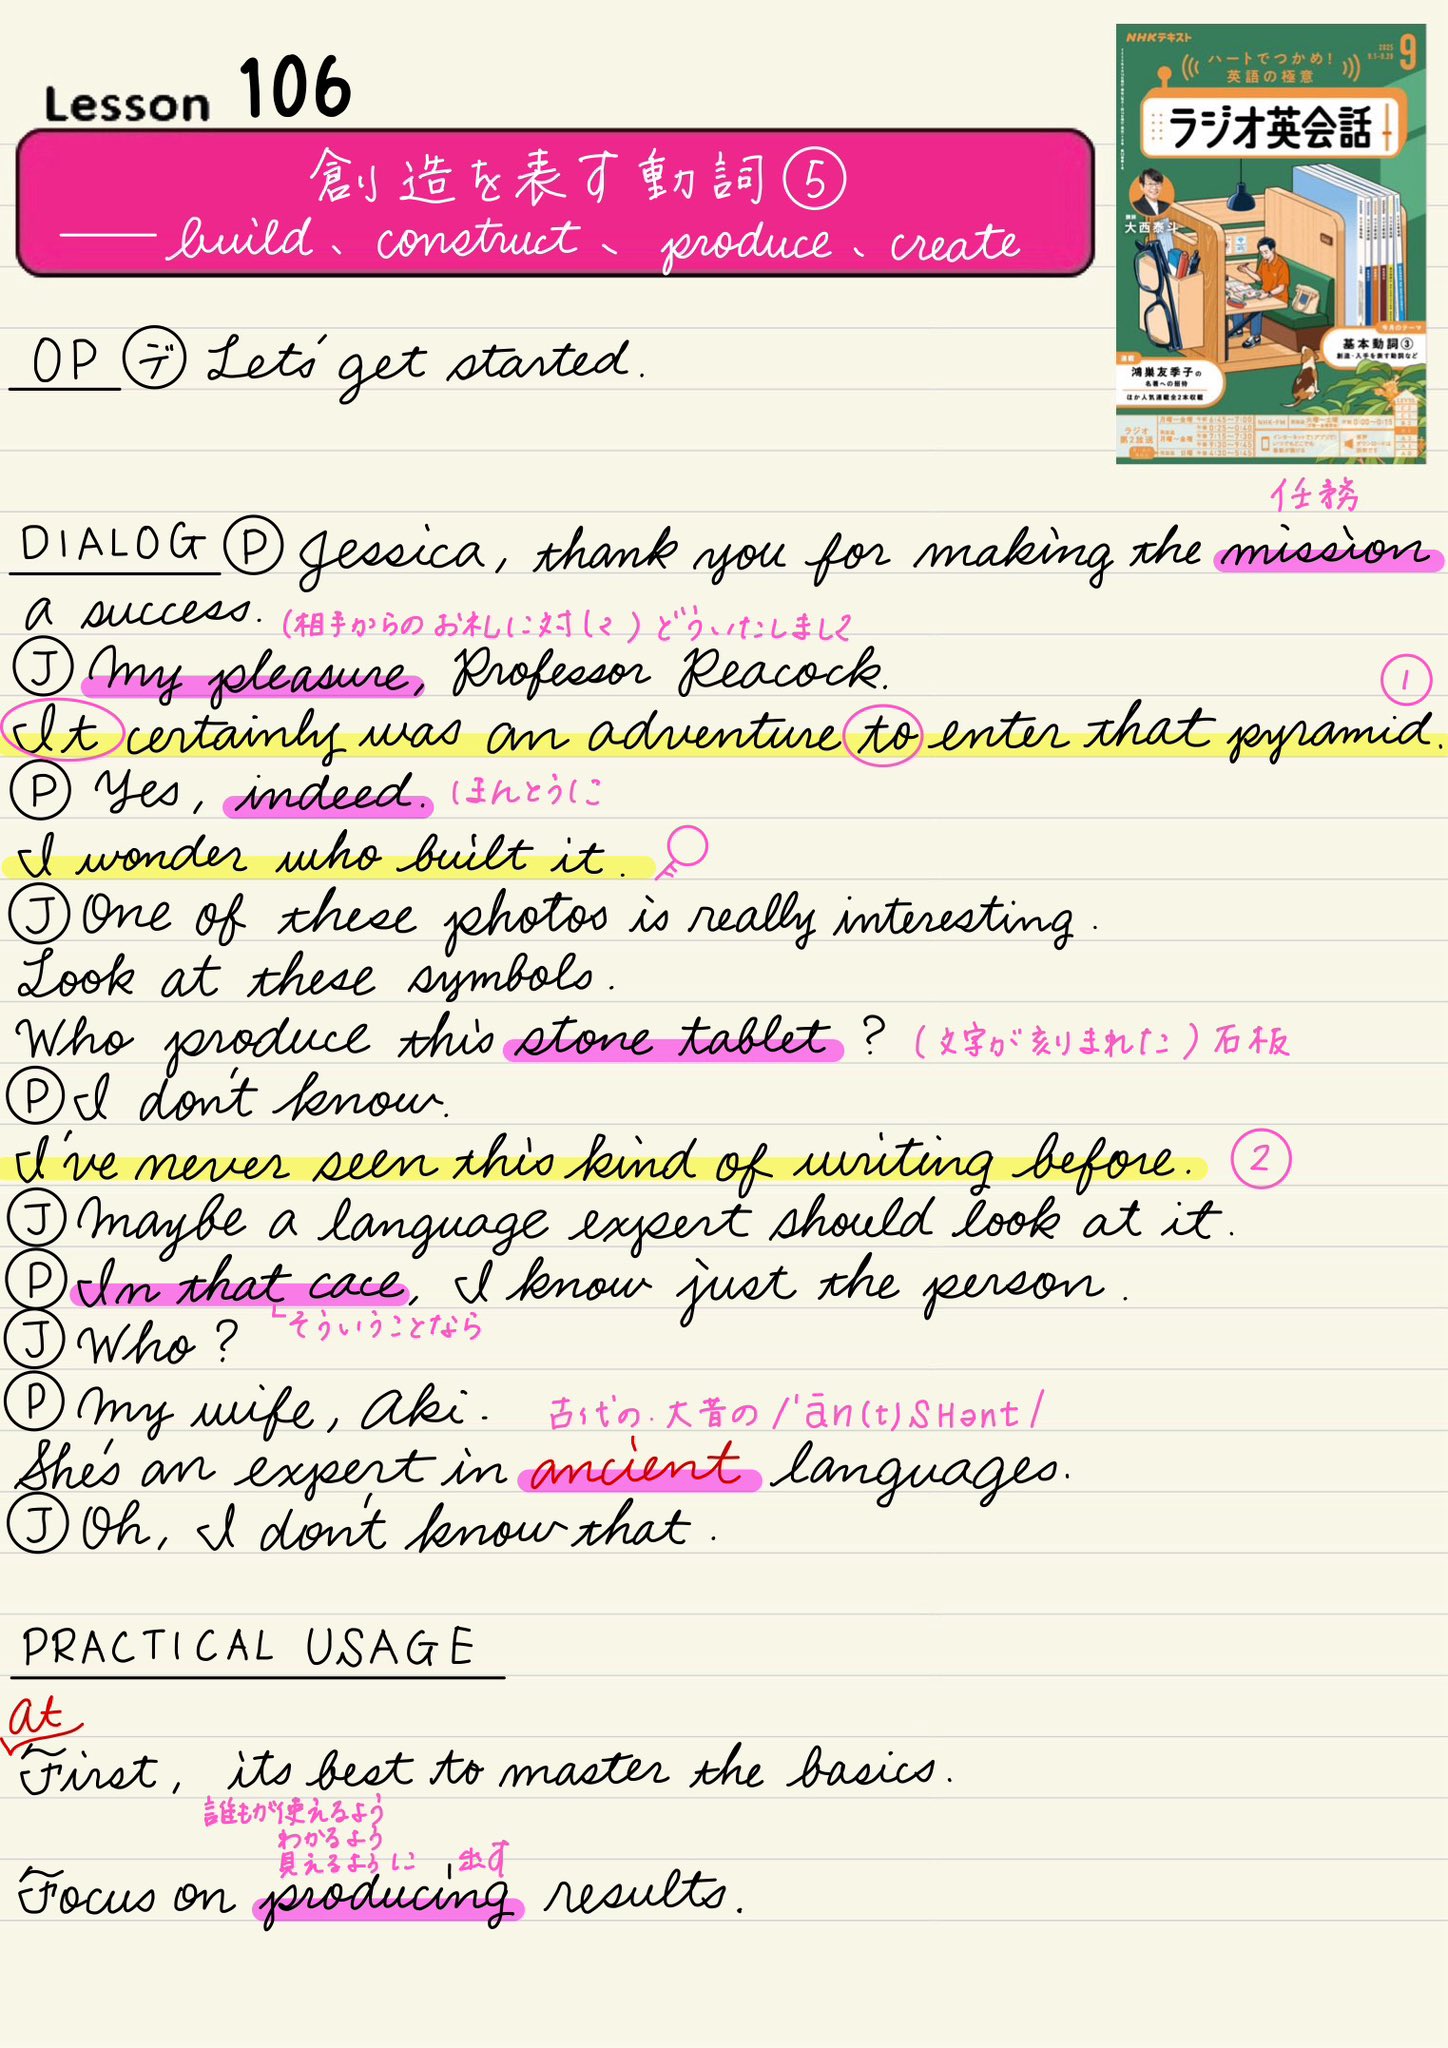 Lesson 106
創造を表す動詞⑤
── build、construct、produce、create
NHKテキスト
2025
9
ハートでつかめ！
英語の極意
ラジオ英会話
講師
大西泰斗
今月のテーマ
基本動詞③
創造・入手を表す動詞など
連載
鴻巣友季子の
名著への招待
ほか人気連載全2本収載
ラジオ
第2放送
OP デ Let's get started.
任務
DIALOG Ⓟ Jessica, thank you for making the mission
a success.
(相手からのお礼に対して) どういたしまして
Ⓙ My pleasure, Professor Peacock.
①
It certainly was an adventure to enter that pyramid.
Ⓟ Yes, indeed. ほんとうに
I wonder who built it.
Ⓙ One of these photos is really interesting.
Look at these symbols.
Who produce this stone tablet? (文字が刻まれた) 石板
Ⓟ I don't know.
I've never seen this kind of writing before. ②
Ⓙ Maybe a language expert should look at it.
Ⓟ In that cace, I know just the person.
そういうことなら
Ⓙ Who?
Ⓟ My wife, Aki. 古代の.大昔の /ˈān(t)SHənt/
She's an expert in ancient languages.
Ⓙ Oh, I don't know that.
PRACTICAL USAGE
At
First, its best to master the basics.
誰もが使えるよう
わかるよう
見えるように 出す
Focus on producing results.